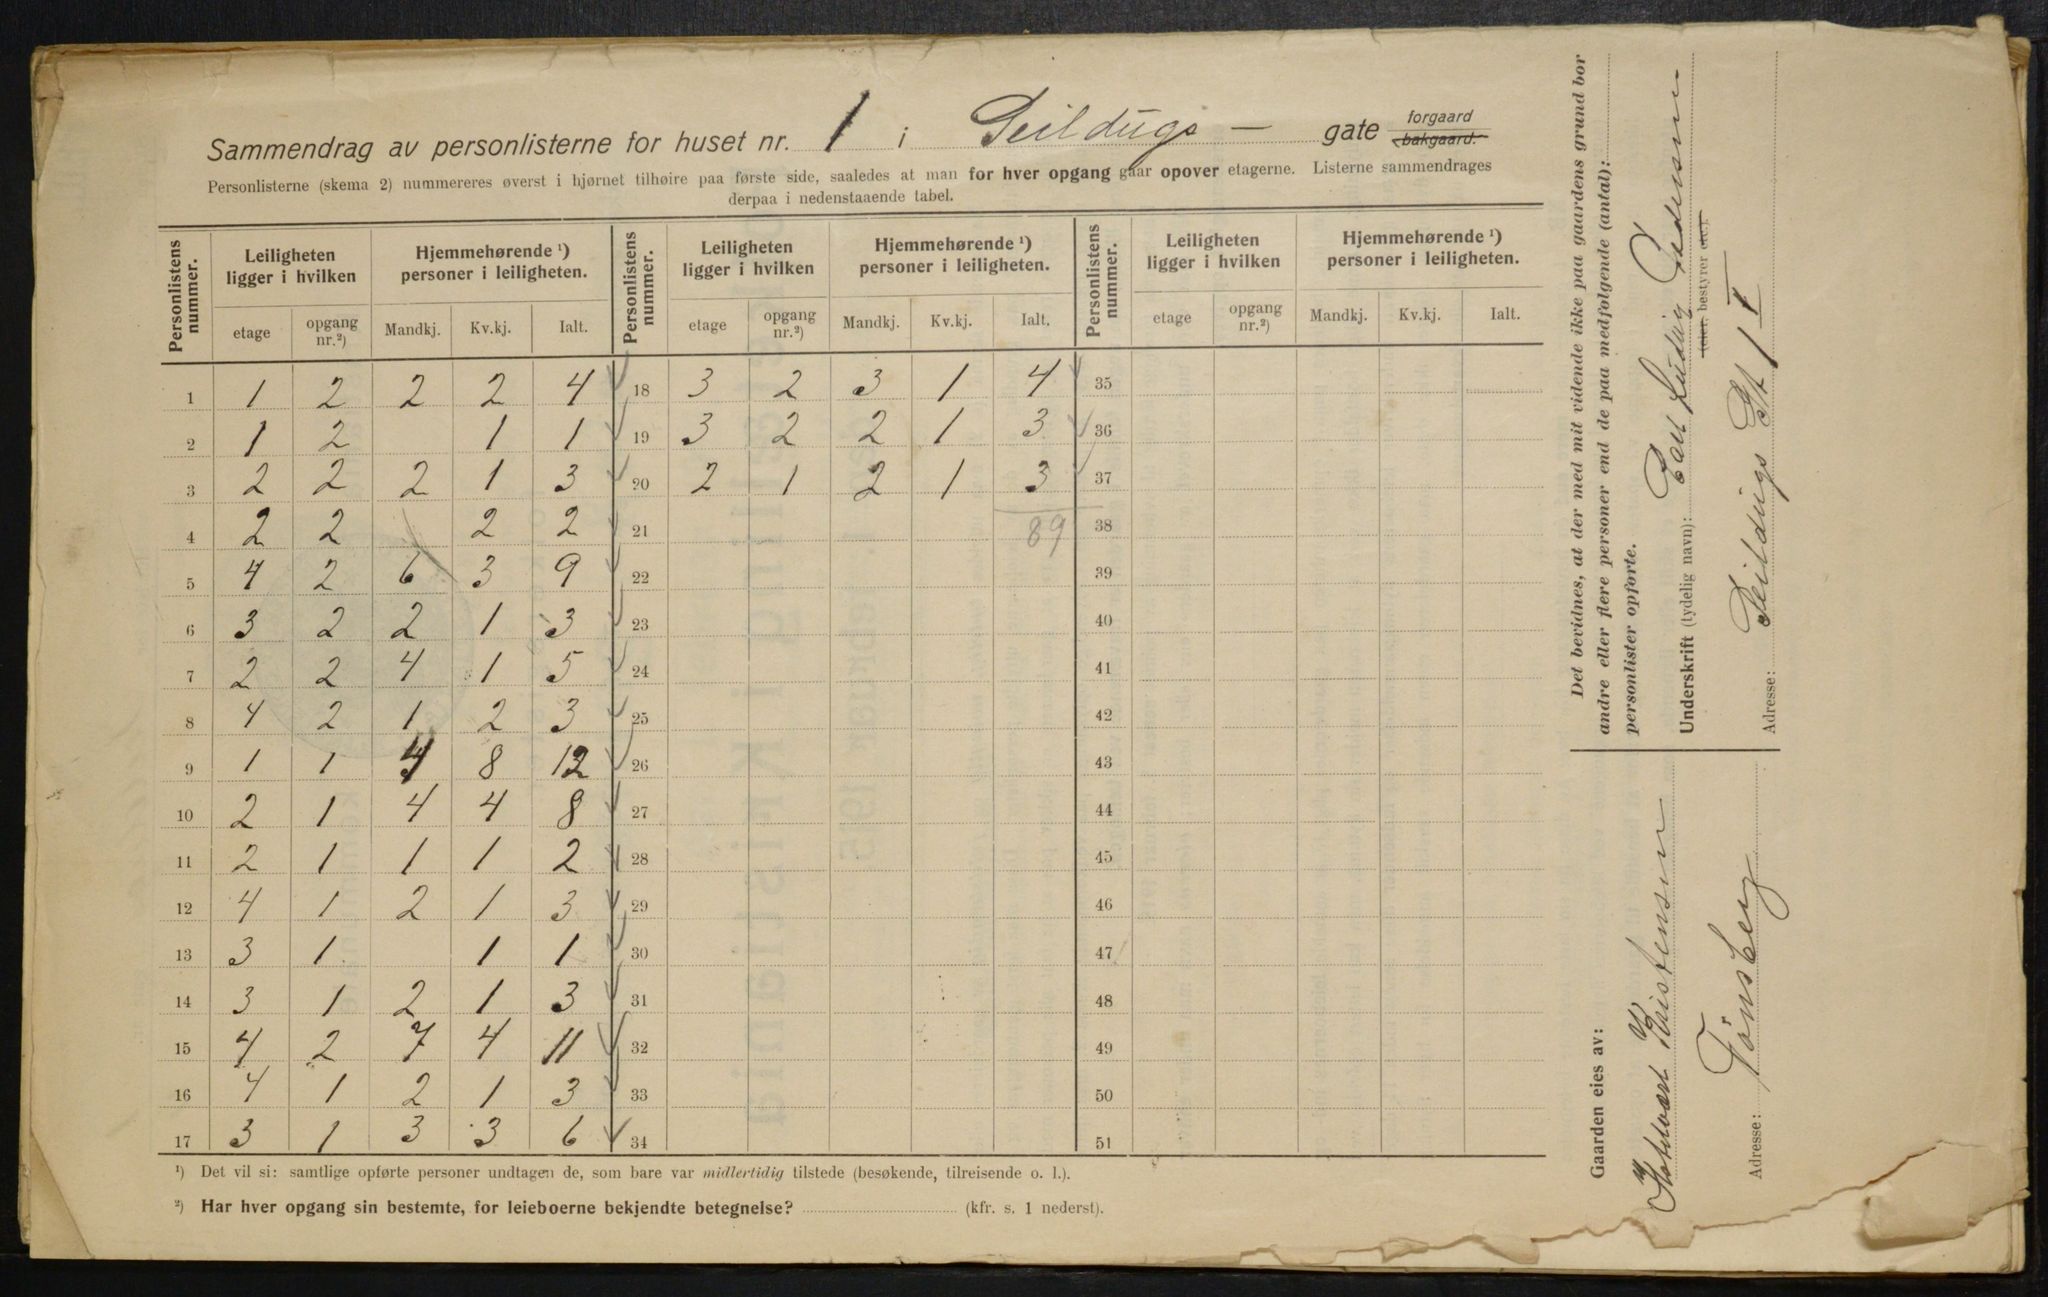 Sammendrag av personlisterne for huset nr. 1 i Seildugs — gate forgaard bakgaard.
Personlisterne (skema 2) nummereres øverst i hjørnet tilhøire paa første side, saaledes at man for hver opgang gaar opover etagerne. Listerne sammendrages
derpaa i nedenstaaende tabel.
Personlistens nummer. Leiligheten ligger i hvilken Hjemmehørende ¹) personer i leiligheten. Personlistens nummer. Leiligheten ligger i hvilken Hjemmehørende ¹) personer i leiligheten. Personlistens nummer. Leiligheten ligger i hvilken Hjemmehørende ¹) personer i leiligheten.
etage opgang nr.²) Mandkj. Kv.kj. Ialt. etage opgang nr.²) Mandkj. Kv.kj. Ialt. etage opgang nr.²) Mandkj. Kv.kj. Ialt.
1 1 2 2 2 4 18 3 2 3 1 4 35
2 1 2 1 1 19 3 2 2 1 3 36
3 2 2 2 1 3 20 2 1 2 1 3 37
4 2 2 2 2 21 89 38
5 4 2 6 3 9 22 39
6 3 2 2 1 3 23 40
7 2 2 4 1 5 24 41
8 4 2 1 2 3 25 42
9 1 1 4 8 12 26 43
10 2 1 4 4 8 27 44
11 2 1 1 1 2 28 45
12 4 1 2 1 3 29 46
13 3 1 1 1 30 47
14 3 1 2 1 3 31 48
15 4 2 7 4 11 32 49
16 4 1 2 1 3 33 50
17 3 1 3 3 6 34 51
¹) Det vil si: samtlige opførte personer undtagen de, som bare var midlertidig tilstede (besøkende, tilreisende o. l.).
²) Har hver opgang sin bestemte, for leieboerne bekjendte betegnelse? (kfr. s. 1 nederst).
Det bevidnes, at der med mit vidende ikke paa gaardens grund bor
andre eller flere personer end de paa medfølgende (antal):
personlister opførte.
Underskrift (tydelig navn): Carl Ludvig Pedersen
(eier, bestyrer etc.).
Adresse: Seildugs Gt 1 I
Gaarden eies av:
Kristensen
Adresse: Tønsberg